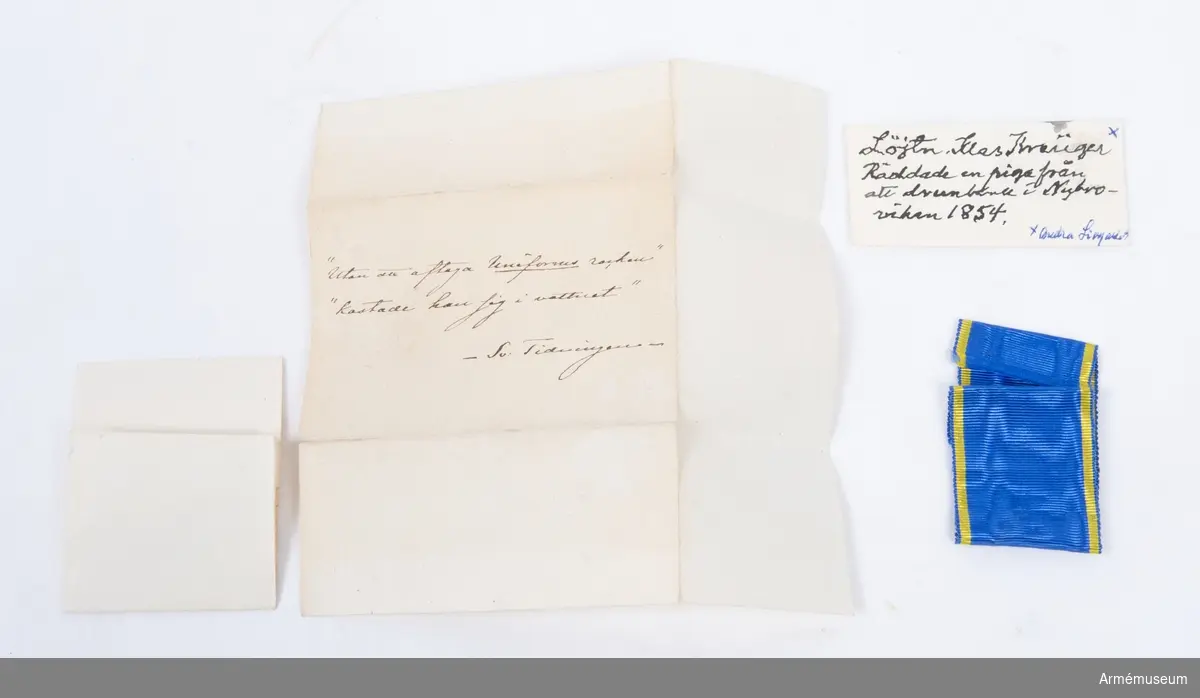 "Utan att aftaga Uniforms rocken"
"kastade han sig i vattnet"
– Sv. Tidningen –
Löjtn. Klas Kreüger x
Räddade en piga från
att drunkna i Nybro-
viken 1854.
x Andra Livgardet
Armémuseum